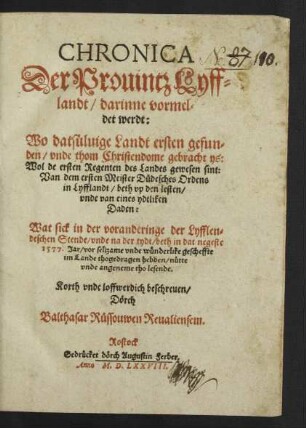 CHRONICA
N. 87 190.
Der Prouintz Lyff-
landt / darinne vormel-
det werdt:
Wo datsüluige Landt ersten gefun-
den / vnde thom Christendome gebracht ys:
Wol de ersten Regenten des Landes gewesen sint:
Van dem ersten Meister Düdesches Ordens
in Lyfflandt / beth vp den lesten /
vnde van eines ydtliken
Daden:
Wat sick in der voranderinge der Lyfflen-
deschen Stende / vnde na der tydt / beth in dat negeste
1577. Jar / vor seltzame vnde wünderlike gescheffte
im Lande thogedragen hebben / nütte
vnde angeneme tho lesende.
Korth vnde loffwerdich beschreuen /
Dörch
Balthasar Rüssouwen Reualiensem.
Rostock
Gedrücket dörch Augustin Ferber.
Anno M. D. LXXVIII.